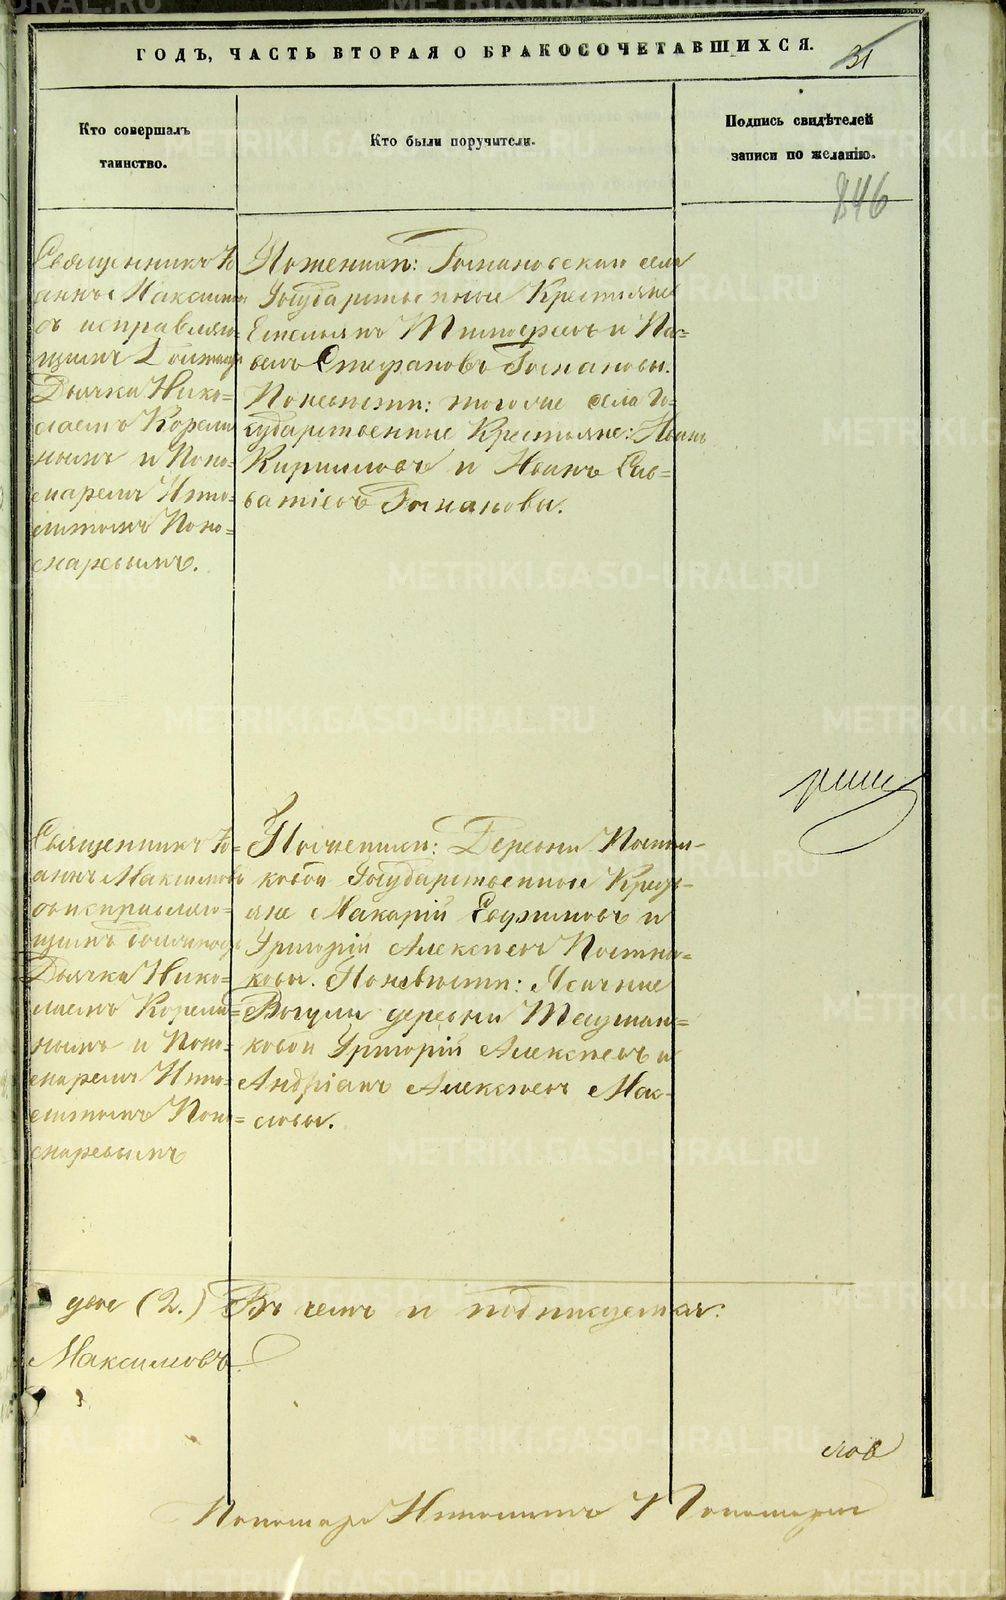 ГОДЪ, ЧАСТЬ ВТОРАЯ О БРАКОСОЧЕТАВШИХСЯ.
31
Кто совершалъ
таинство.
Кто были поручители.
Подпись свидѣтелей
записи по желанію.
846
Священникъ Іо-
аннъ Максимовъ
съ исправляю-
щимъ должность
Дьячка Нико-
лаемъ Корели-
нымъ и Поно-
маремъ Иппо-
литомъ Поно-
маревымъ.
По женихѣ: села
Государственные Крестьяне
Емельянъ Тимофеевъ и Па-
велъ Стефановъ
По невѣстѣ: того же села Го-
сударственные Крестьяне: Иванъ
Кирилловъ и Иванъ Сав-
ватіевъ
Священникъ Іо-
аннъ Максимовъ
съ исправляю-
щимъ должность
Дьячка Нико-
лаемъ Корели-
нымъ и Поно-
маремъ Иппо-
литомъ Поно-
маревымъ
По женихѣ: Деревни Постни-
ковой Государственные Кресть-
яне Макарій Евфимовъ и
Григорій Алексѣевъ Постни-
ковы. По невѣстѣ: Ясачные
Вогулы деревни
ковой Григорій Алексѣевъ и
Андріанъ Алексѣевъ Мас-
ловы.
двое (2.) Въ чемъ и подписуемся:
Максимовъ.
лов
Пономарь Ипполитъ Пономарев
METRIKI.GASO-URAL.RU